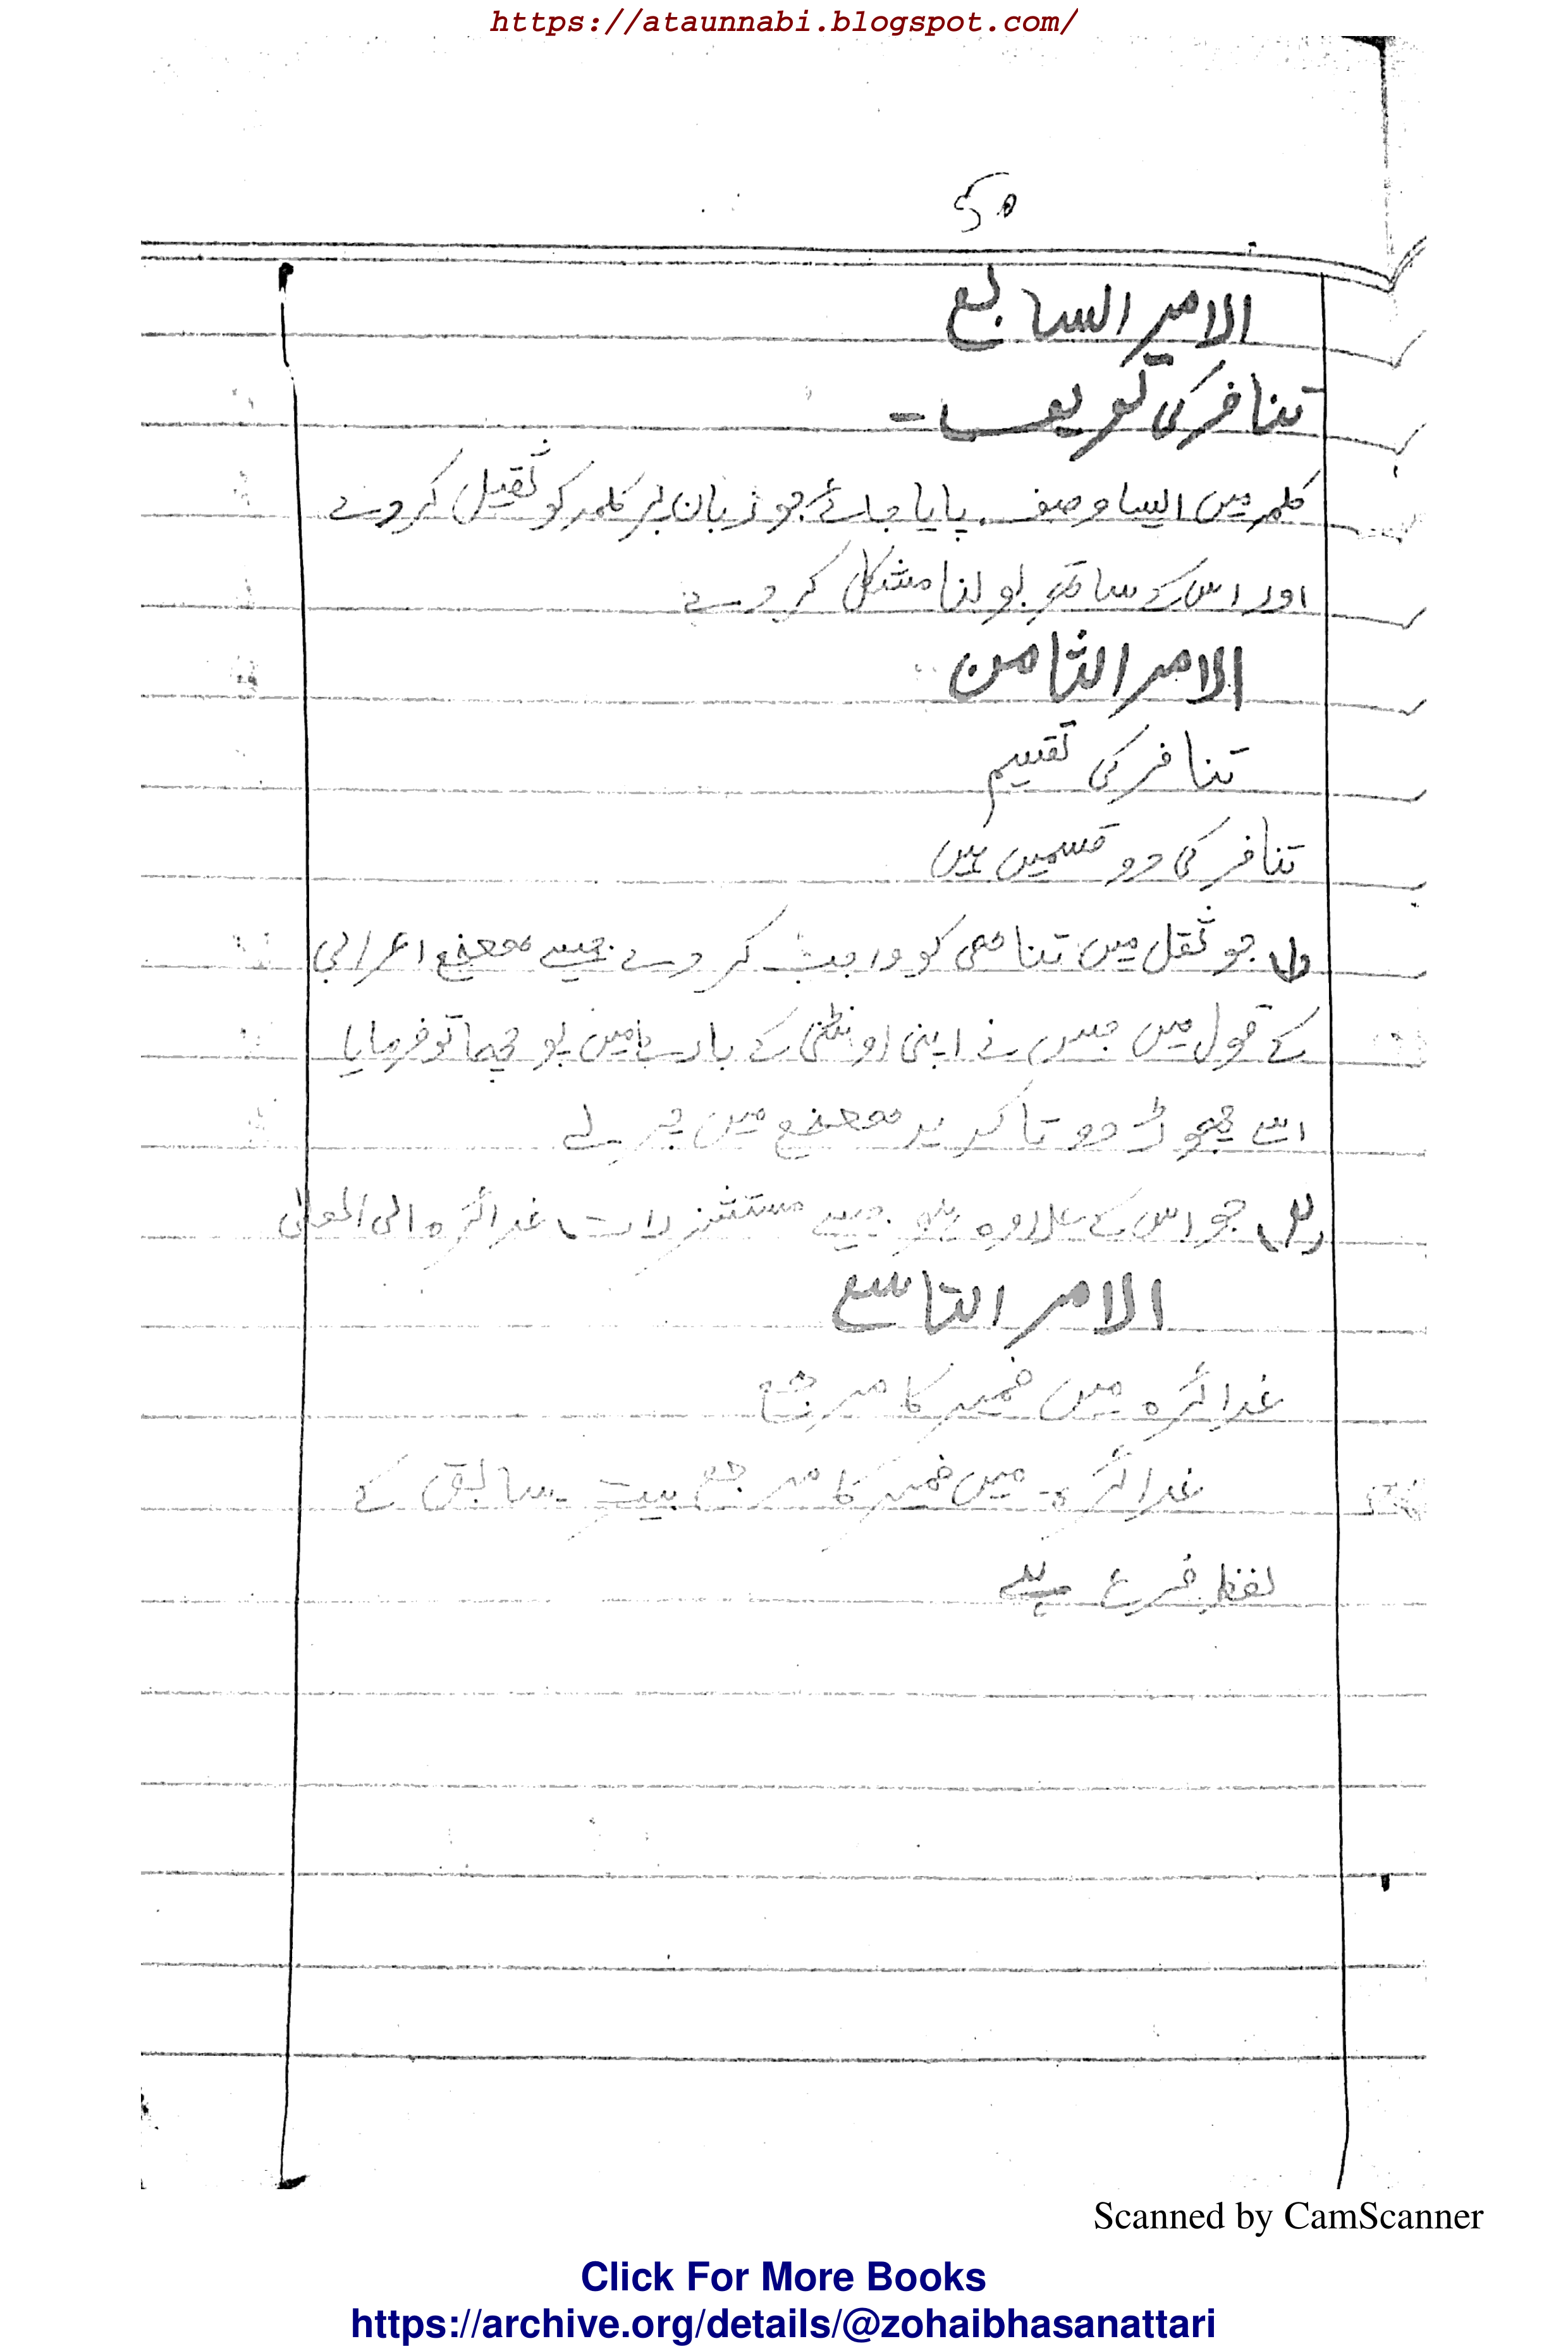 https://ataunnabi.blogspot.com/
50
الامر السابع
تنافر کی تعریف -
کلمہ میں ایسا وصف پایا جائے جو زبان پر کلمہ کو ثقیل کر دے
اور اس کے ساتھ بولنا مشکل کر دے
الامر الثامن
تنافر کی تقسیم
تنافر کی دو قسمیں ہیں
جو ثقل میں تناھی کو واجب کر دے جیسے ھعخع اعرابی
کے قول میں جس نے اپنی اونٹنی کے بارے میں پوچھا تو فرمایا
اسے چھوڑ دو تاکہ یہ ھعخع میں چرے
جو اس کے علاوہ ہو جیسے مستشزرات غدائرہ الی العلی
الامر التاسع
غدائرہ میں ضمیر کا مرجع
غدائرہ میں ضمیر کا مرجع بیت سابق کے
لفظ فرع ہے
Scanned by CamScanner
Click For More Books
https://archive.org/details/@zohaibhasanattari